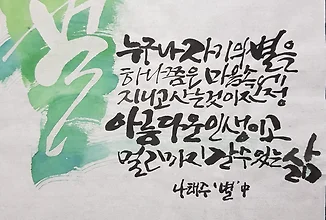 별
누구나 자기의 별을
하나쯤은 마음속에
지니고 사는 것이 진정
아름다운 인생이고
멀리까지 갈 수 있는 삶
나태주 '별' 中